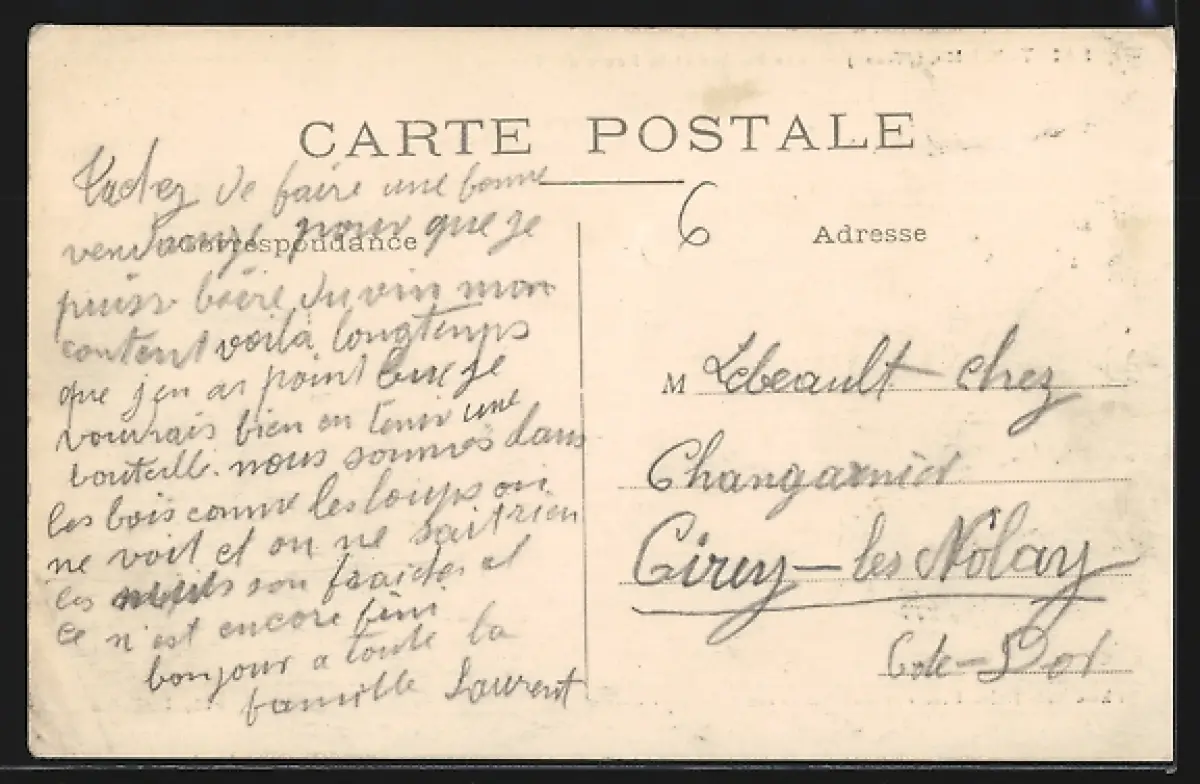 CARTE POSTALE
Correspondance
Tachez de faire une bonne
vendange pour que je
puisse boire du vin mon
content voila longtemps
que jen ai point bu je
voudrais bien en tenir une
bouteille. nous sommes dans
les bois comme les loups on
ne voit et on ne sait rien
les nuits son fraiches et
ce n'est encore fini
bonjour a toute la
famille Laurent
6
Adresse
M Lebeault chez
Changarnier
Cirey-les Nolay
Cote-Dor